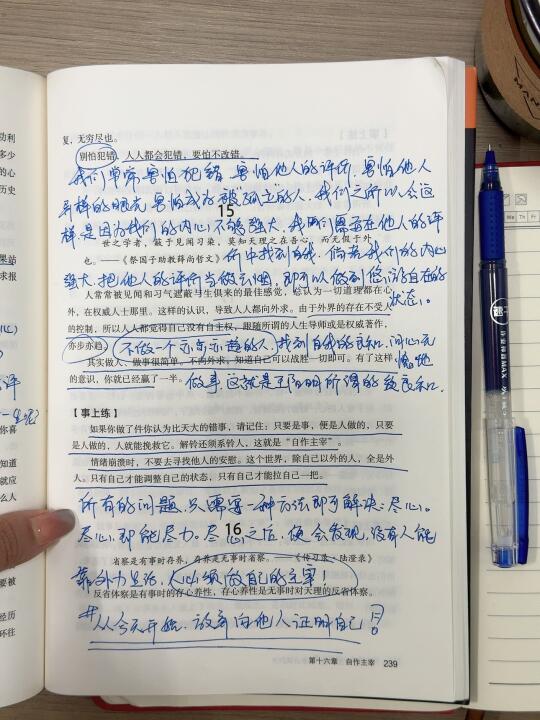 复，无穷尽也。
别怕犯错，人人都会犯错，要怕不改错。
我们常常害怕犯错，害怕他人的评价，害怕他人
异样的眼光，害怕成为被“孤立”的人，我们之所以会这
15
样是因为我们的内心不够强大，我们需要在他人的评
世之学者，蔽于见闻习染，莫知天理之在吾心，而无假于外
也。——《祭国子助教薛尚哲文》
价中找到自我。倘若我们的内心
强大，把他人的评价当做云烟，即可以做到悠游自在的
状态。
人常常被见闻和习气遮蔽与生俱来的最佳感觉，总认为一切道理都在心
外，在权威人士那里。这样的认识，导致人人都向外求。由于外界的存在不受人
的控制，所以人人都觉得自己没有自主权，跟随所谓的人生导师或是权威著作，
亦步亦趋。
不做一个亦步亦趋的人，找到自我的良知，问心无
愧地
其实做人、做事很简单，不向外求，知道自己可以战胜一切即可。有了这样
的意识，你就已经赢了一半。
做事，这就是王阳明所谓的致良知。
【事上练】
如果你做了件你认为比天大的错事，请记住：只要是事，便是人做的，只要
是人做的，人就能挽救它。解铃还须系铃人，这就是“自作主宰”。
情绪崩溃时，不要去寻找他人的安慰。这个世界，除自己以外的人，全是外
人。只有自己才能调整自己的状态，只有自己才能拉自己一把。
所有的问题，只需要一种方法即可解决：尽心。
尽心，即能尽力。尽心之后，便会发现，没有人能
16
省察是有事时存养，存养是无事时省察。——《传习录·陆澄录》
靠外力生活，人必须做自己的主宰！
反省体察是有事时的存心养性，存心养性是无事时对天理的反省体察。
#从今天开始，放弃向他人证明自己！
第十六章 自作主宰 239